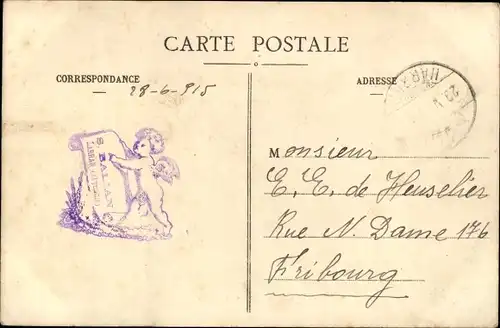 CARTE POSTALE
CORRESPONDANCE
28-6-915
ADRESSE
S. BALLAN
Monsieur
E. E. de Heuselier
Rue N. Dame 176
Fribourg